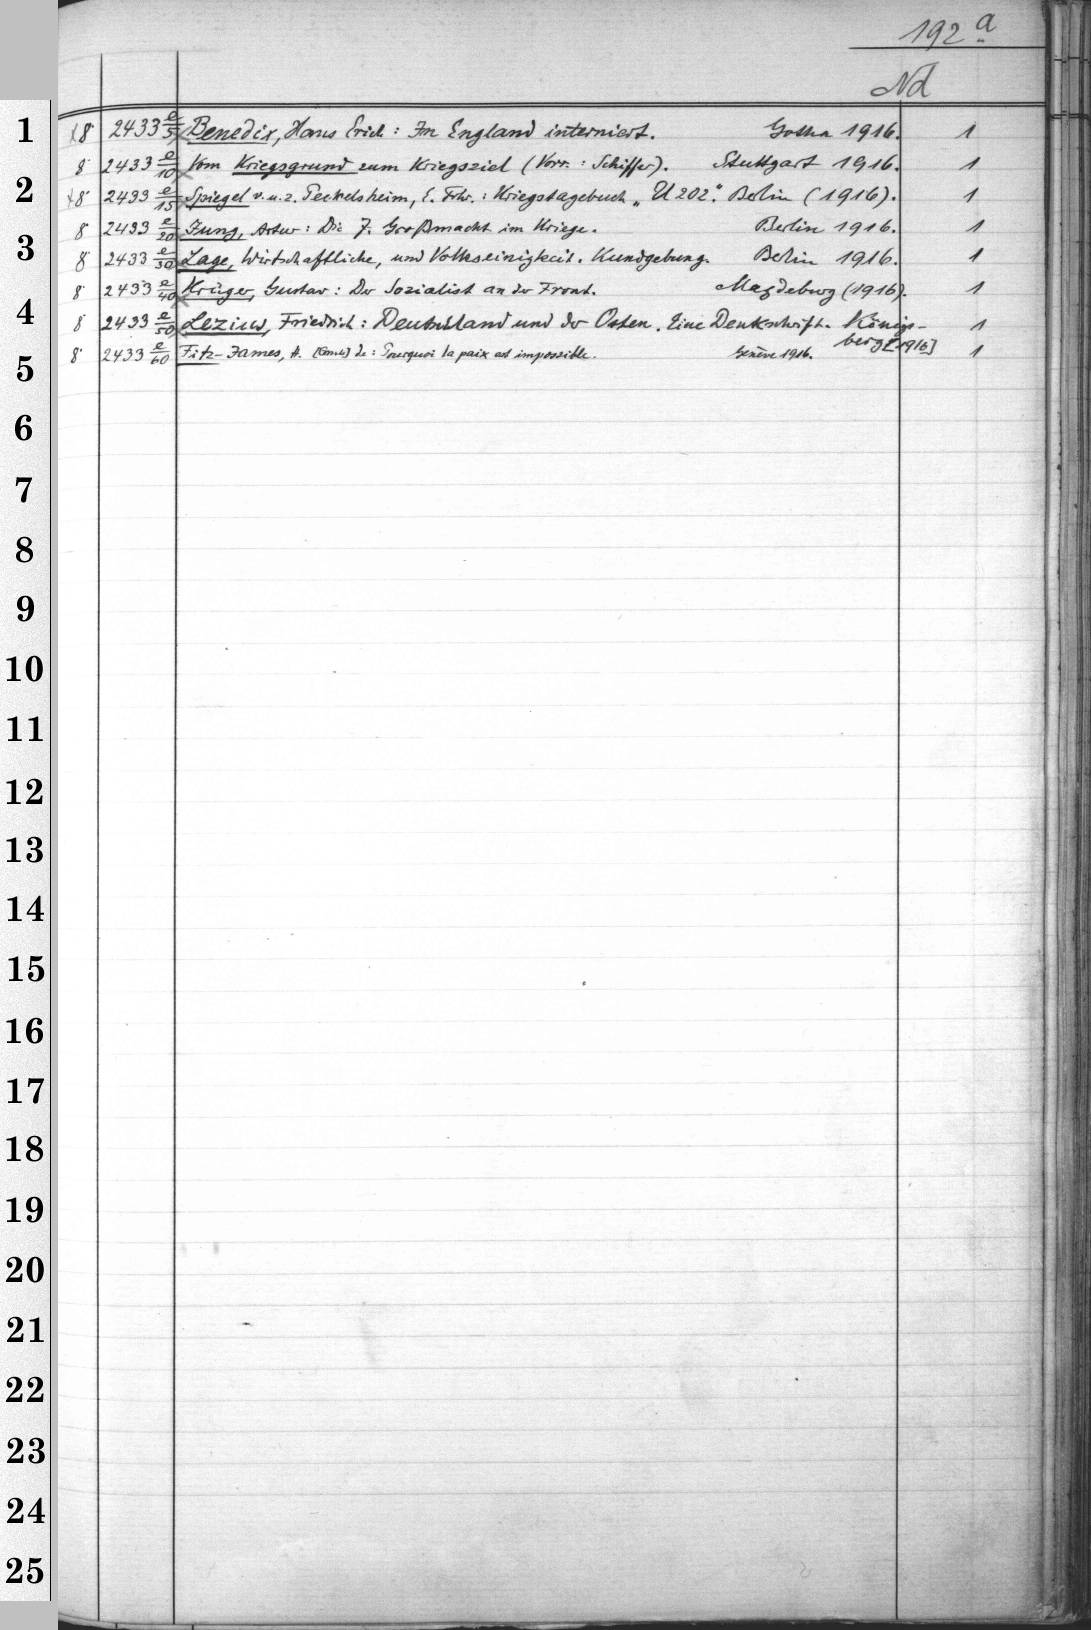 192 a
Nd
8° 2433 e/5 Benedix, Hans Erich: Im England interniert. Gotha 1916. 1
8° 2433 e/10 Vom Kriegsgrund zum Kriegsziel (Vorr.: Schiffer). Stuttgart 1916. 1
8° 2433 e/15 Spiegel v. u. z. Peckelsheim, E. Frhr.: Kriegstagebuch „U 202." Berlin (1916). 1
8° 2433 e/20 Jung, Artur: Die 7. Großmacht im Kriege. Berlin 1916. 1
8° 2433 e/30 Lage, Wirtschaftliche, und Volkseinigkeit. Kundgebung. Berlin 1916. 1
8° 2433 e/40 Krüger, Gustav: Der Sozialist an der Front. Magdeburg (1916). 1
8° 2433 e/50 Lezius, Friedrich: Deutschland und der Osten. Eine Denkschrift. Königs-
berg [1916] 1
8° 2433 e/60 Fitz-James, H. de: Pourquoi la paix est impossible. Genève 1916. 1
1
2
3
4
5
6
7
8
9
10
11
12
13
14
15
16
17
18
19
20
21
22
23
24
25